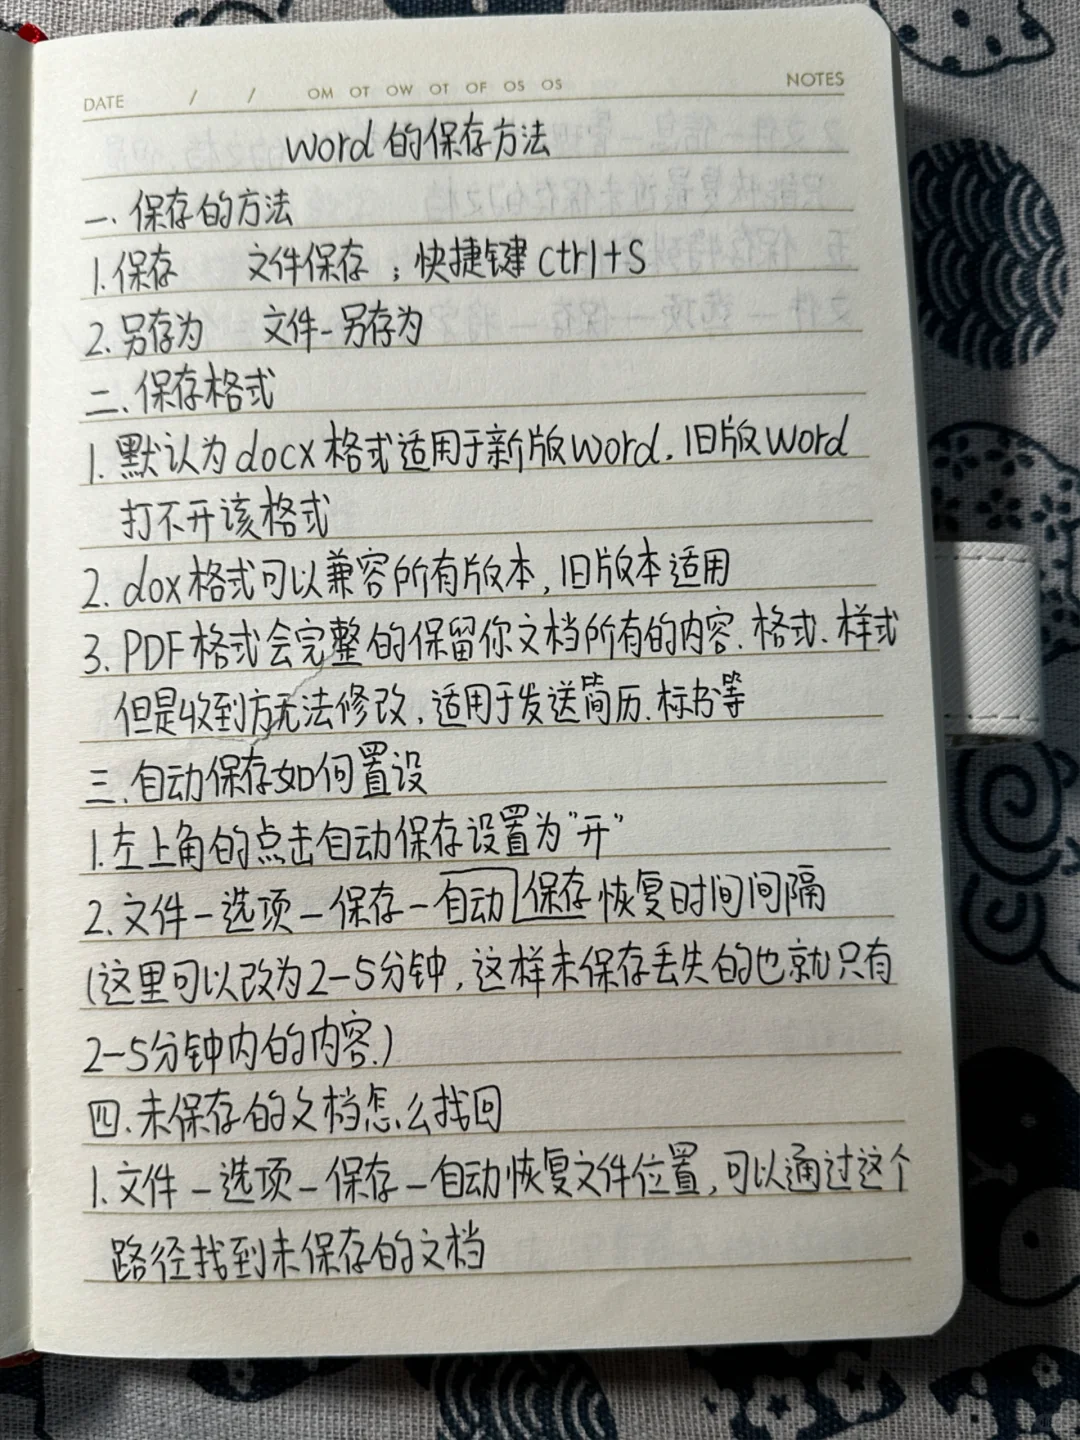 DATE / / OM OT OW OT OF OS OS NOTES
Word的保存方法
一.保存的方法
1.保存 文件保存；快捷键 ctrl+S
2.另存为 文件-另存为
二.保存格式
1.默认为docx格式适用于新版word.旧版word
打不开该格式
2.dox格式可以兼容所有版本,旧版本适用
3.PDF格式会完整的保留你文档所有的内容.格式.样式
但是收到方无法修改,适用于发送简历.标书等
三.自动保存如何置设
1.左上角的点击自动保存设置为"开"
2.文件-选项-保存-自动保存恢复时间间隔
(这里可以改为2-5分钟,这样未保存丢失的也就只有
2-5分钟内的内容.)
四.未保存的文档怎么找回
1.文件-选项-保存-自动恢复文件位置,可以通过这个
路径找到未保存的文档